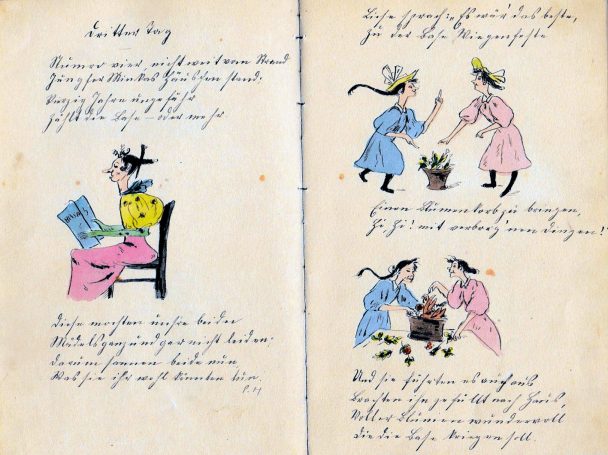 Dritter Tag
Numro vier, nicht weit vom Strand
Jungfer Minkas Häuschen stand;
Vierzig Jahre ungefähr
Zählt die Base – oder mehr
Diese mochten unsre beiden
Mädels ganz und gar nicht leiden;
Darum sannen beide nun
Was sie ihr wohl könnten tun.
Liese sprach: „Es wär' das beste,
Zu der Base Wiegenfeste
Einen Blumenkorb zu bringen,
Hi, Hi! mit verborg'nen Dingen!
Und sie führten es auch aus
Brachten ihn gefüllt nach Haus,
Voller Blumen wundervoll
Die die Base kriegen soll.